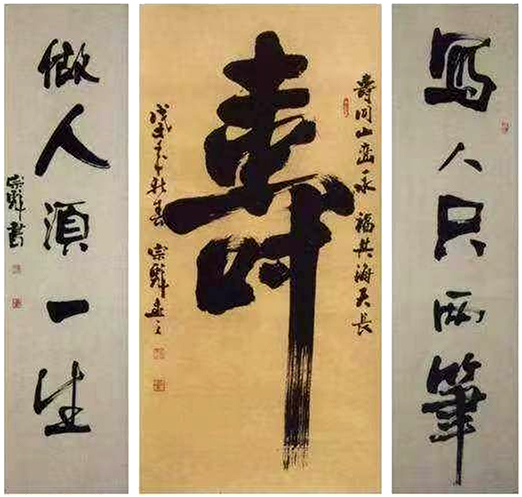 寫人只兩筆
壽同山巒永 福共海天長
壽
戊戌年秋春 宗輝書之
做人須一生
宗輝書